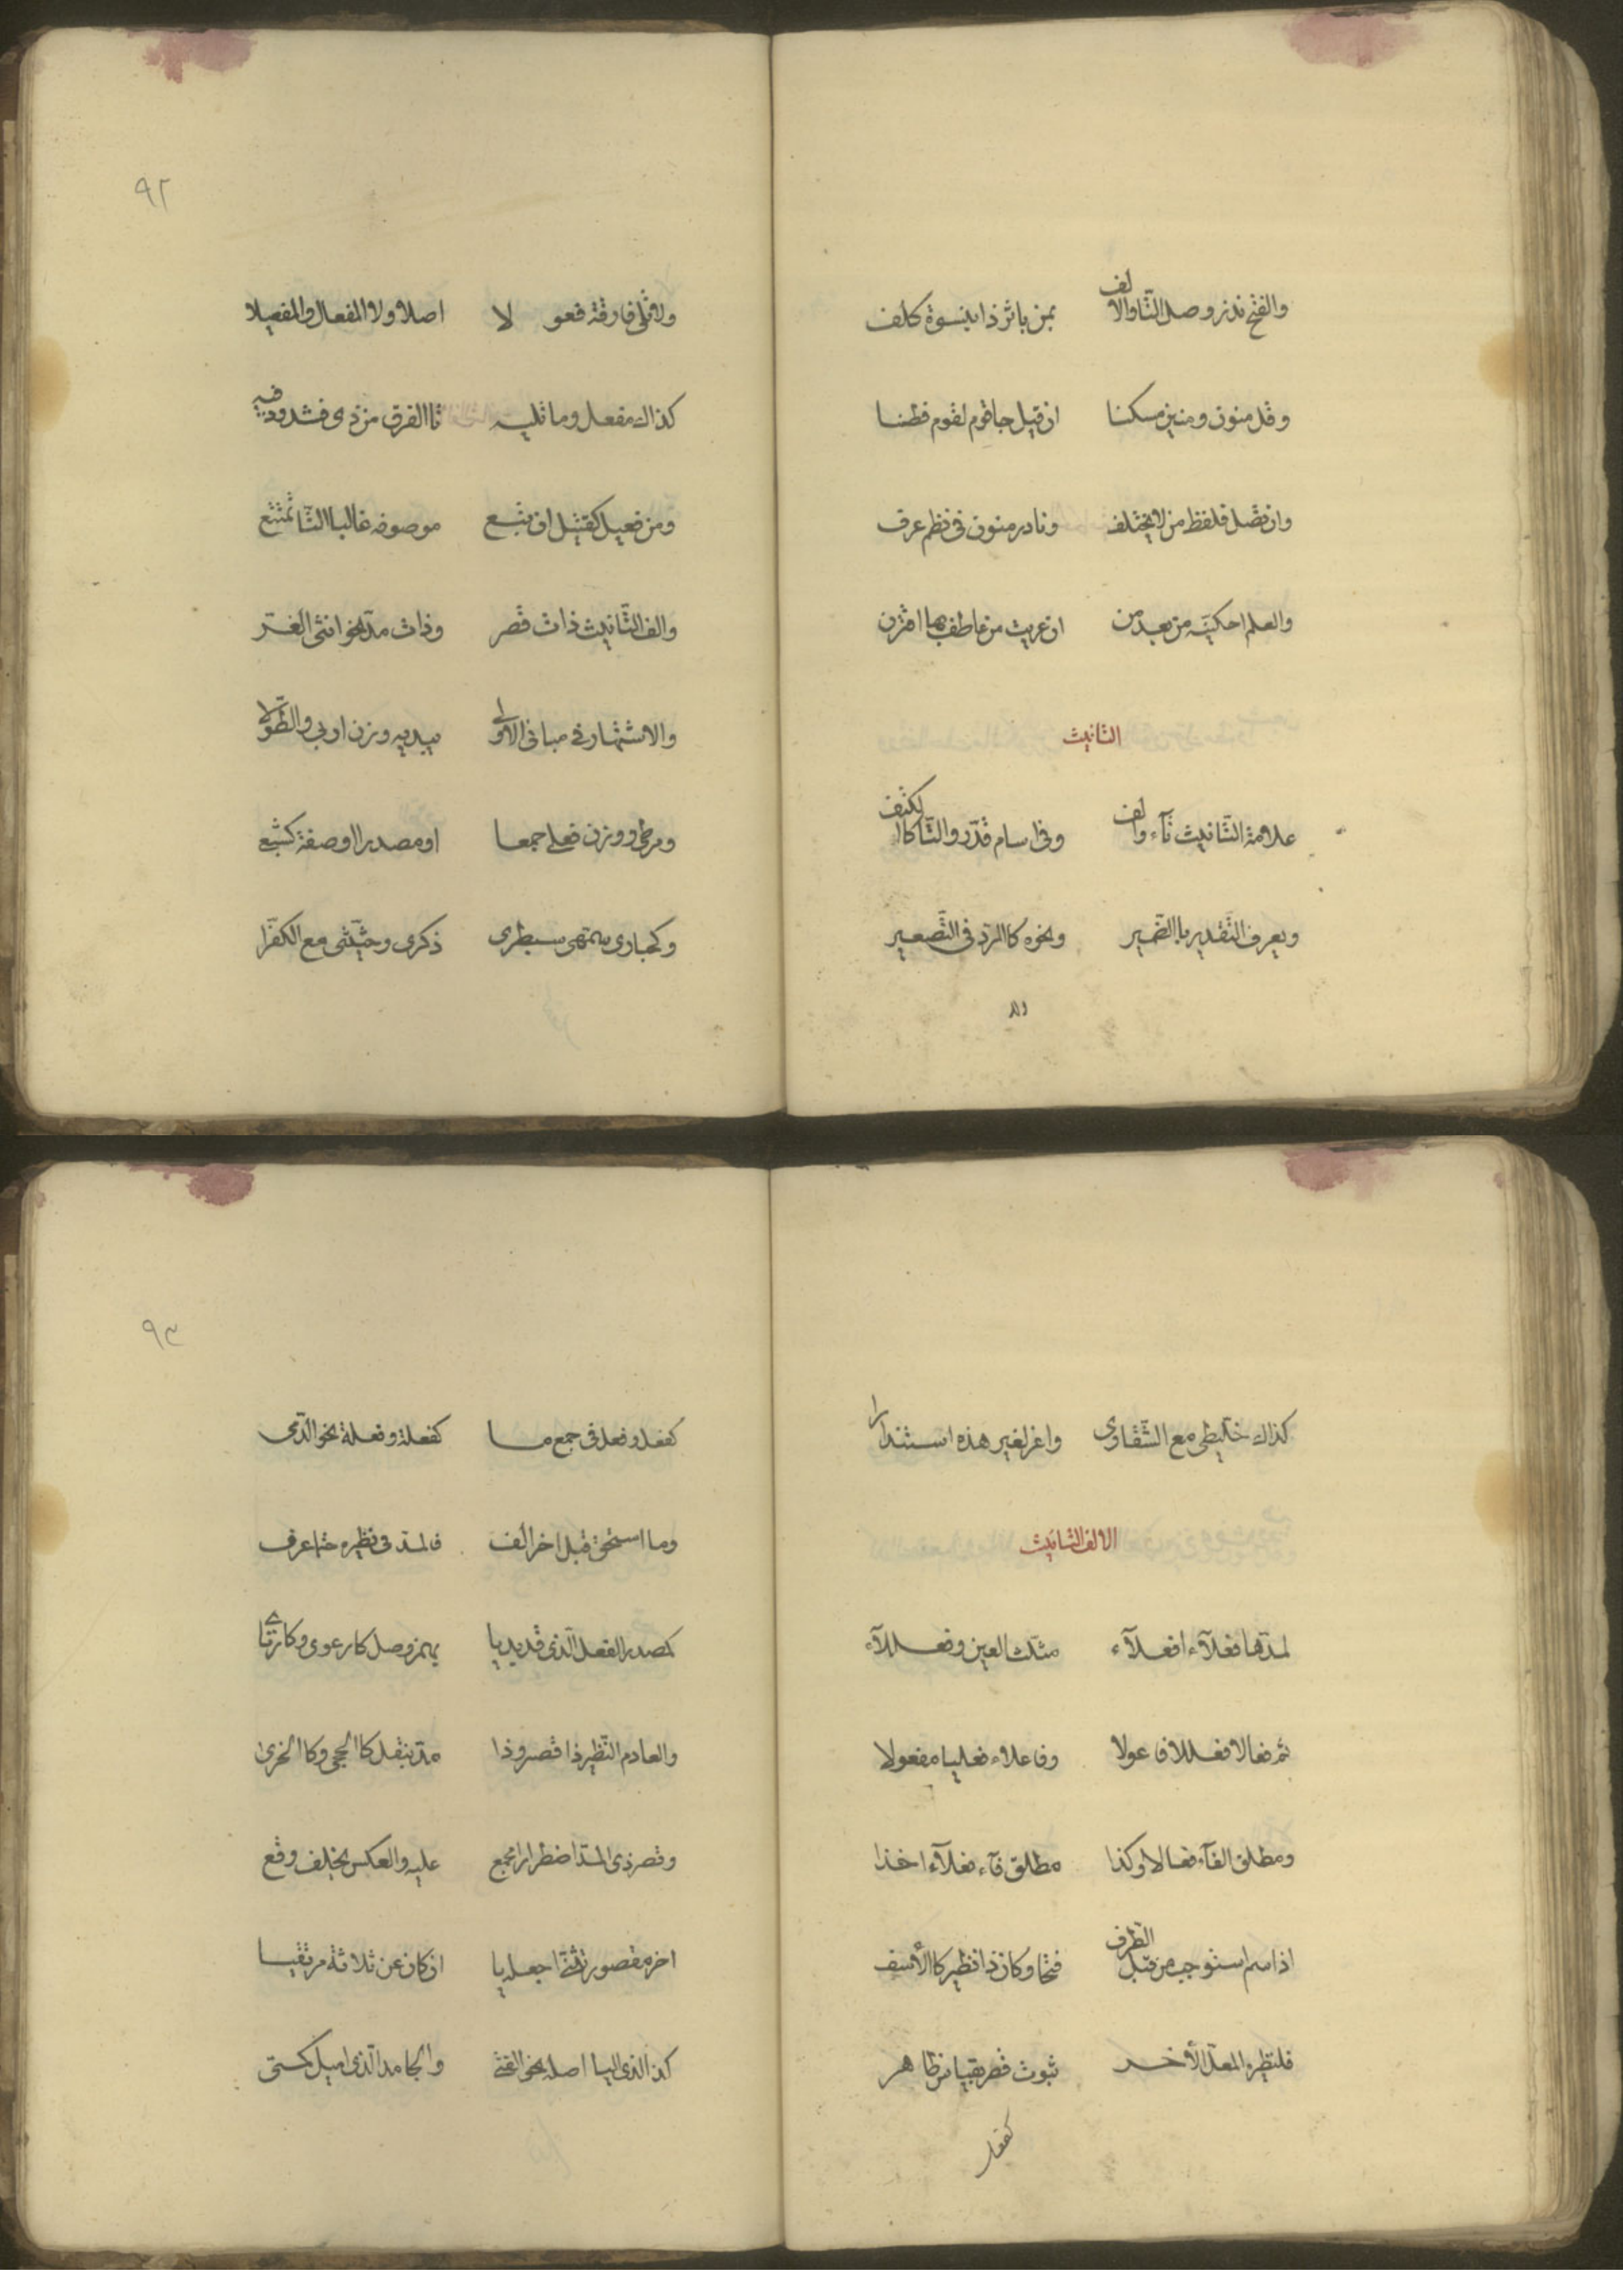 والفتح نذر وصل التا والالف بمن باثر ذا بنسوة كلف
وقل منون ومنين مسكنا ان قيل جا قوم لقوم فطنا
وان تصل فلفظ من لا يختلف ونادر منون في نظم عرف
والعلم احكينه من بعد من ان عريت من عاطف بها اقترن
التانيث
علامة التانيث تآء والف وفى اسام قدّروا التّا كالكتف
ويعرف التقدير بالضّمير ونحوه كالرّد فى التّصعير
ولا
٩٢
ولا تلى فارقة فعولا اصلا ولا المفعال والمفعيلا
كذاك مفعل وما تليه تا الفرق من ذى فشذوذ فيه
ومن فعيل كقتيل ان تبع موصوفه غالبا التّا تمتنع
والف التّانيث ذات قصر وذات مدّ نحو انثى الغر
والاشتهار فى مبانى الاولى يبديه وزن اربى والطّولى
ومرطى ووزن فعلى جمعا او مصدرا او صفة كشبعى
وكحبارى سمّهى سبطرى ذكرى وحثّيثى مع الكفرّى
كذاك خلّيطى مع الشّقارى واعز لغير هذه استندارا
الالف التانيث
لمدّها فعلآء افعلآء مثلث العين وفعللآء
ثم فعالا فعللا فاعولا وفاعلاء فعليا مفعولا
ومطلق الفآء فعالا وكذا مطلق فآء فعلآء اخذا
اذا اسم استوجب من قبل الطّرف فتحا وكان ذا نظير كالأسف
فلنظيره المعلّ الأخر ثبوت قصر بقياس ظاهر
كفعل
٩٣
كفعل وفعل فى جمع ما كفعلة وفعلة نحو الدّمى
وما استحق قبل اخر الف فالمدّ فى نظيره حتما عرف
كمصدر الفعل الّذى قد بديا بهمز وصل كارعوى وكارتأى
والعادم النّظير ذا قصر وذا مدّ بنقل كالحجى وكالخرى
وقصر ذى المدّ اضطرارا مجمع عليه والعكس بخلف وقع
اخر مقصور تثنّى اجعله يا ان كان عن ثلاثة مرتقيا
كذا الذى اليا اصله نحو الفتى والجامد الّذى اميل كمتى